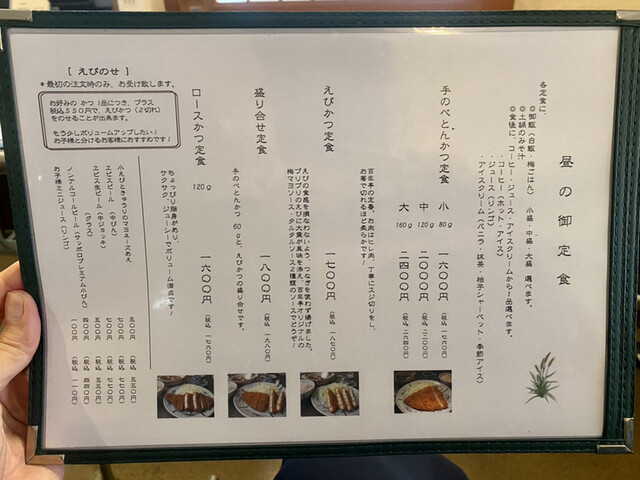 昼の御定食
各定食に、
◎御飯（白飯・梅ごはん） 小盛・中盛・大盛 選べます。
◎土鍋のみそ汁
◎食後に、コーヒー・ジュース・アイスクリームから1品選べます。
・コーヒー（ホット・アイス）
・ジュース（リンゴ）
・アイスクリーム（バニラ・抹茶・柚子シャーベット・季節アイス）
手のべとんかつ定食
小 80g 一六〇〇円（税込 一七六〇円）
中 120g 二〇〇〇円（税込 二二〇〇円）
大 160g 二四〇〇円（税込 二六四〇円）
百年亭の定番。お肉はヒレ肉、丁寧にスジ切りをし、
お箸で切れるほど柔らかです！
えびかつ定食 一七〇〇円（税込 一八七〇円）
えびの食感を損なわないよう、つなぎを使わず揚げました。
プリプリのえびに大葉が風味を添え、百年亭オリジナルの
梅マヨソース・タルタルソース2種類のソースでどうぞ！
盛り合せ定食 一八〇〇円（税込 一九八〇円）
手のべとんかつ 60gと、えびかつの盛り合せです。
ロースかつ定食 120g 一六〇〇円（税込 一七六〇円）
ちょっぴり脂身があり、
サクサク ジューシーでボリューム満点です！
［えびのせ］
*最初の注文時のみ、お受け致します。
お好みの かつ 1品につき、プラス
税込550円で、えびかつ（2切れ）
をのせることが出来ます。
もう少しボリュームアップしたい！
お子様と分けるお客様におすすめです！
小えびときゅうりのマヨネーズあえ 五〇〇円（税込 五五〇円）
ヱビスビール（中びん） 七〇〇円（税込 七七〇円）
ヱビス生ビール（中ジョッキ） 七〇〇円（税込 七七〇円）
（グラス） 五〇〇円（税込 五五〇円）
ノンアルコールビール（サッポロプレミアム小びん） 四〇〇円（税込 四四〇円）
お子様ミニジュース（リンゴ） 一〇〇円（税込 一一〇円）